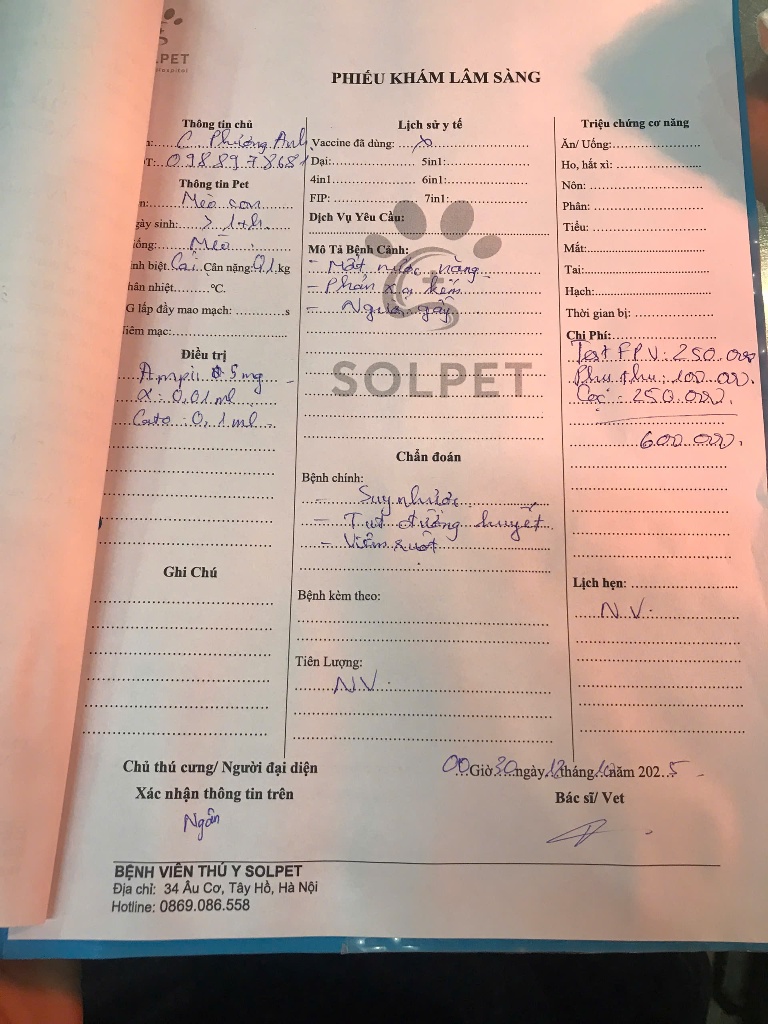 LPET
PHIẾU KHÁM LÂM SÀNG
Thông tin chủ
C Phương Anh
T: 0988978681
Thông tin Pet
n: Mèo con
gày sinh: > 1th
ống: Mèo
nh biệt: Cái Cân nặng: 0,1 kg
hân nhiệt:..........°C.
G lấp đầy mao mạch:..........s
iêm mạc:
Điều trị
Ampi 5mg
α: 0,01 ml
Cato: 0,1 ml
Ghi Chú
Lịch sử y tế
Vaccine đã dùng: x
Dại: 5in1:
4in1 6in1:
FIP: 7in1:
Dịch Vụ Yêu Cầu:
Mô Tả Bệnh Cảnh:
- Mất nước nặng
- Phản xạ kém
- gầy
SOLPET
Chẩn đoán
Bệnh chính:
- Suy nhược
- Tụt đường huyết
- Viêm ruột
Bệnh kèm theo:
Tiên Lượng:
N.V.
Triệu chứng cơ năng
Ăn/ Uống:
Ho, hắt xì:
Nôn:
Phân:
Tiểu:
Mắt:
Tai:
Hạch:
Thời gian bị:
Chi Phí:
Test FPV: 250.000
Phụ thu: 100.000.
250.000.
600.000.
Lịch hẹn:
N.V.
Chủ thú cưng/ Người đại diện
Xác nhận thông tin trên
Ngân
00 Giờ 30 ngày 18 tháng 10 năm 2025
Bác sĩ/ Vet
BỆNH VIÊN THÚ Y SOLPET
Địa chỉ: 34 Âu Cơ, Tây Hồ, Hà Nội
Hotline: 0869.086.558